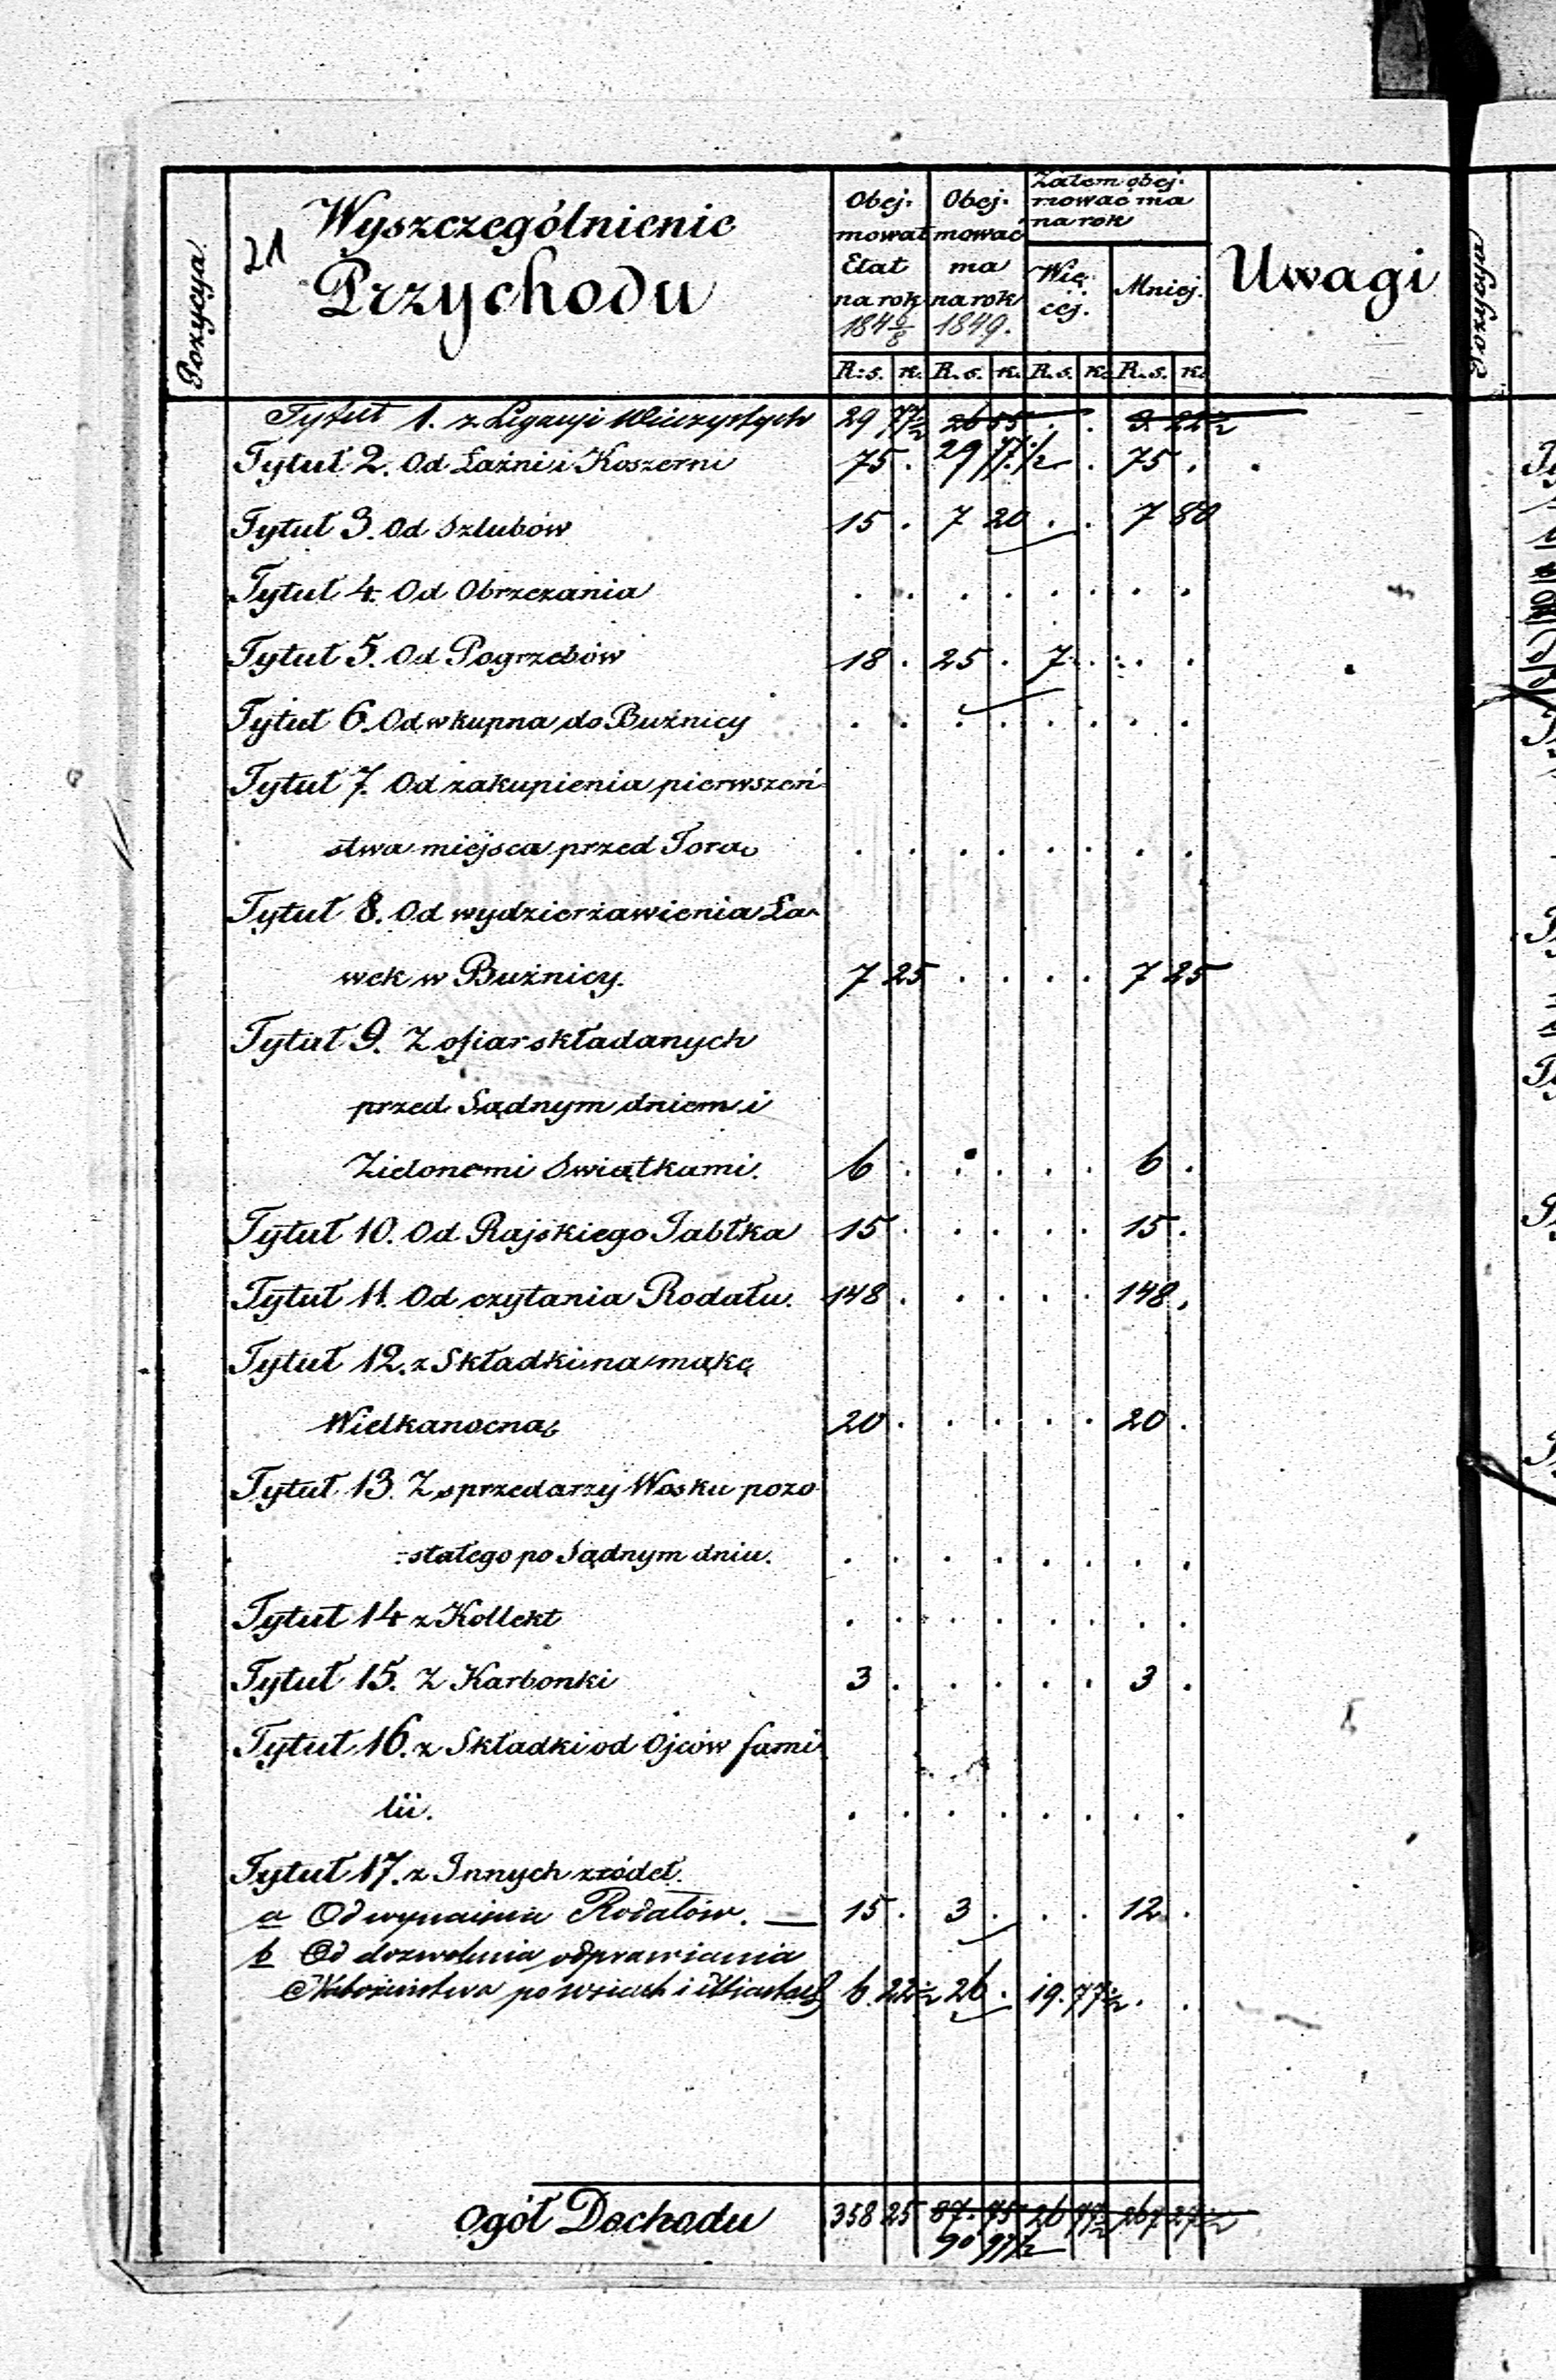 Pozycya
21
Wyszczególnienie
Przychodu
Obej-
mował
Etat
na rok
184 6/8
Obej-
mować
ma
na rok
1849.
Zatem obej-
mować ma
na rok
Wię-
cej.
Mniej.
Uwagi
R: s. k. R. s. k. R. s. k. R. s. k.
Tytuł 1. z Legacyi Wieczystych 29 77½ 26 55 . . 3 22½
Tytuł 2. Od Łaźni i Koszerni 75 . 29 77½ . 75 .
Tytuł 3. Od Szlubów 15 . 7 20 . . 7 80
Tytuł 4. Od Obrzezania . . . . . . . .
Tytuł 5. Od Pogrzebów 18 . 25 . 7 . . .
Tytuł 6. Od wkupna do Bużnicy . . . . . . . .
Tytuł 7. Od zakupienia pierwszeń-
stwa miejsca przed Torą . . . . . . . .
Tytuł 8. Od wydzierżawienia Ła-
wek w Bużnicy. 7 25 . . . . 7 25
Tytuł 9. Z ofiar składanych
przed Sądnym dniem i
Zielonemi Swiątkami. 6 . . . . . 6 .
Tytuł 10. Od Rajskiego Jabłka 15 . . . . . 15 .
Tytuł 11. Od czytania Rodału. 148 . . . . . 148 .
Tytuł 12. z Składki na mąkę
Wielkanocną 20 . . . . . 20 .
Tytuł 13. Z sprzedarzy Wosku pozo-
-stałego po Sądnym dniu. . . . . . . . .
Tytuł 14 z Kollekt . . . . . . . .
Tytuł 15. Z Karbonki 3 . . . . . 3 .
Tytuł 16. z Składki od Ojców fami-
lii. . . . . . . . .
Tytuł 17. z Innych zródeł.
a Od wynaięcia Rodałów. — 15 . 3 . . . 12 .
b Od dozwolenia odprawiania
Nabożeństwa po wsiach i Miastach 6. 22½ 26 . 19. 77½ . .
Ogół Dochodu 358 25 87. 75 26 77½ 267 27½
90 97½
Pozycya